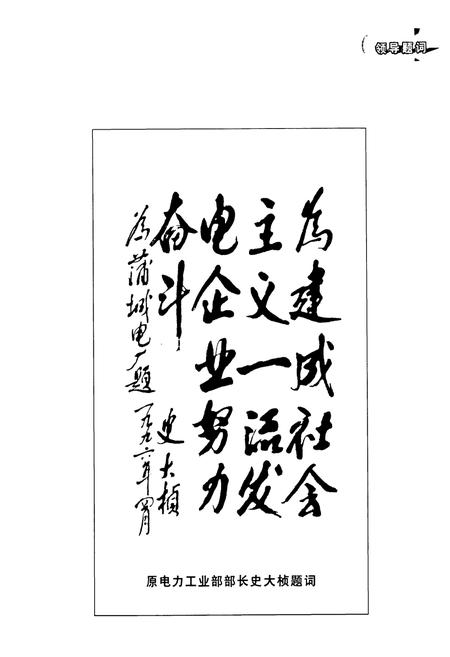 领导题词
为建成社会
主义一流发
电企业努力
奋斗
为蒲城电厂题
史大桢
一九九六年四月
原电力工业部部长史大桢题词